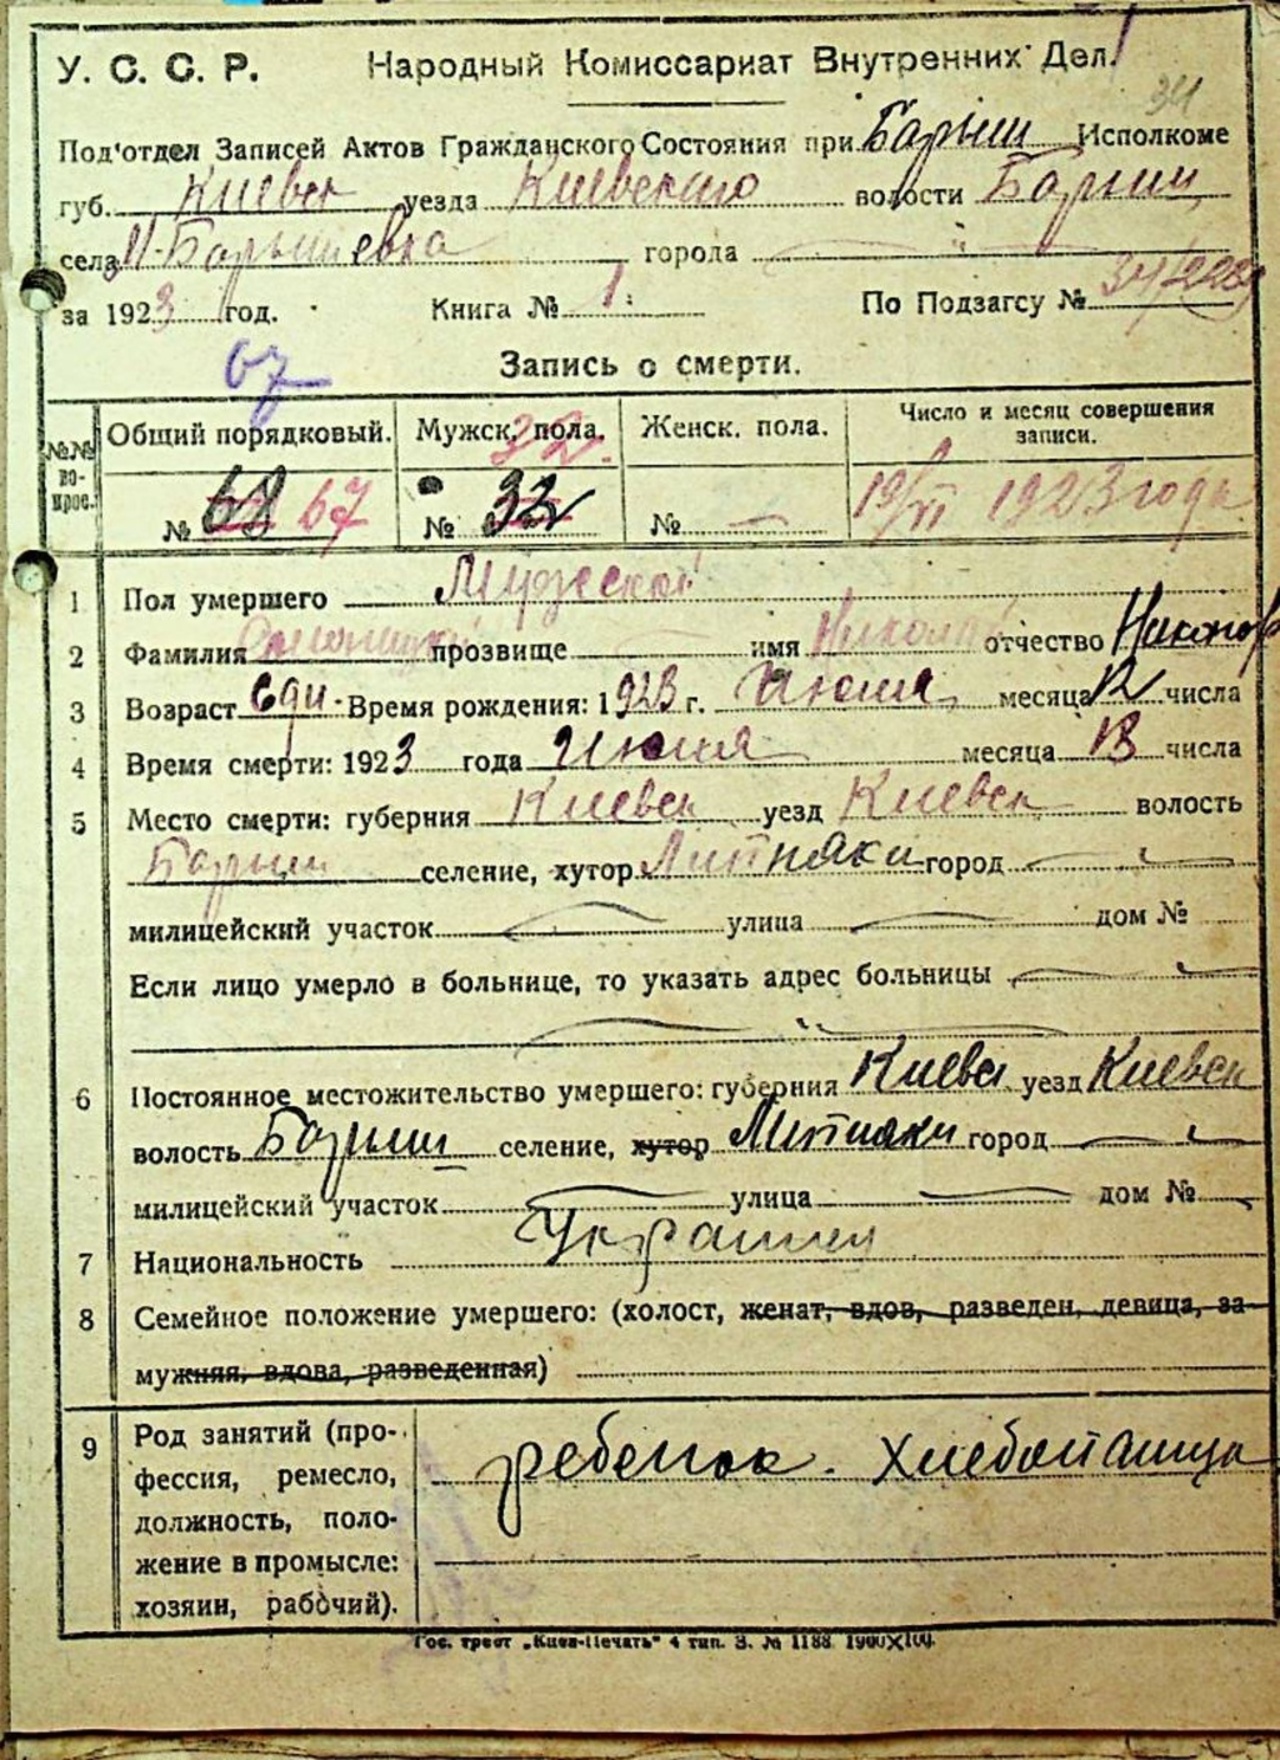 У. С. С. Р. Народный Комиссариат Внутренних Дел.
34
Под'отдел Записей Актов Гражданского Состояния при Барыш Исполкоме
губ. Киевск уезда Киевского волости Барыш
села М-Барышевка города
за 1923 год. Книга № 1 По Подзагсу №
67
Запись о смерти.
№№ по- Общий порядковый. Мужск. пола. Женск. пола. Число и месяц совершения записи.
32
№ 68 67 № 32 № 19/VI 1923 года
1 Пол умершего Мужской
2 Фамилия прозвище имя Николай отчество Никонор
3 Возраст 1 дн. Время рождения: 1923 г. Июня месяца 12 числа
4 Время смерти: 1923 года Июня месяца 13 числа
5 Место смерти: губерния Киевск уезд Киевск волость
Барыш селение, хутор Липняки город
милицейский участок улица дом №
Если лицо умерло в больнице, то указать адрес больницы
6 Постоянное местожительство умершего: губерния Киевск уезд Киевск
волость Барыш селение, хутор Липняки город
милицейский участок улица дом №
7 Национальность Украинец
8 Семейное положение умершего: (холост, женат, вдов, разведен, девица, за-
мужняя, вдова, разведенная)
9 Род занятий (про-
фессия, ремесло,
должность, поло-
жение в промысле:
хозяин, рабочий).
ребенок. Хлебопашца
Гос. трест „Киев-Печать" 4 тип. З. № 1188 1900X100.